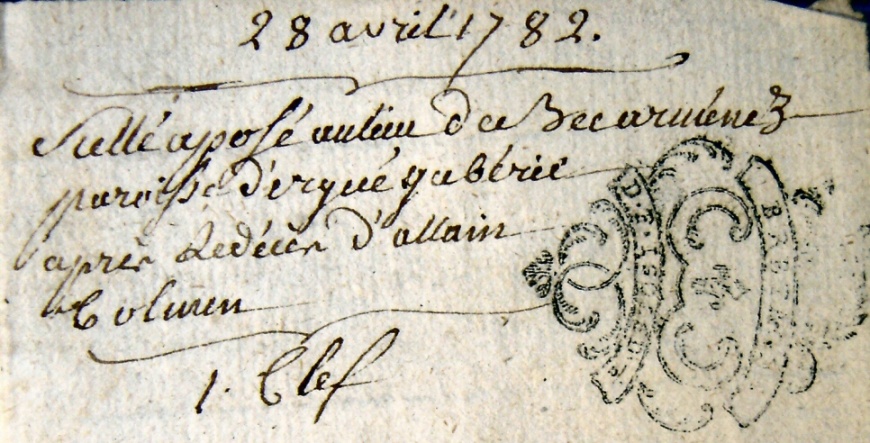 28 avril 1782.
Sçellé aposé au lieu de Becarménez
paroisse d'ergué gabéric
après Le décès d'allain
Colmen
1. Clef